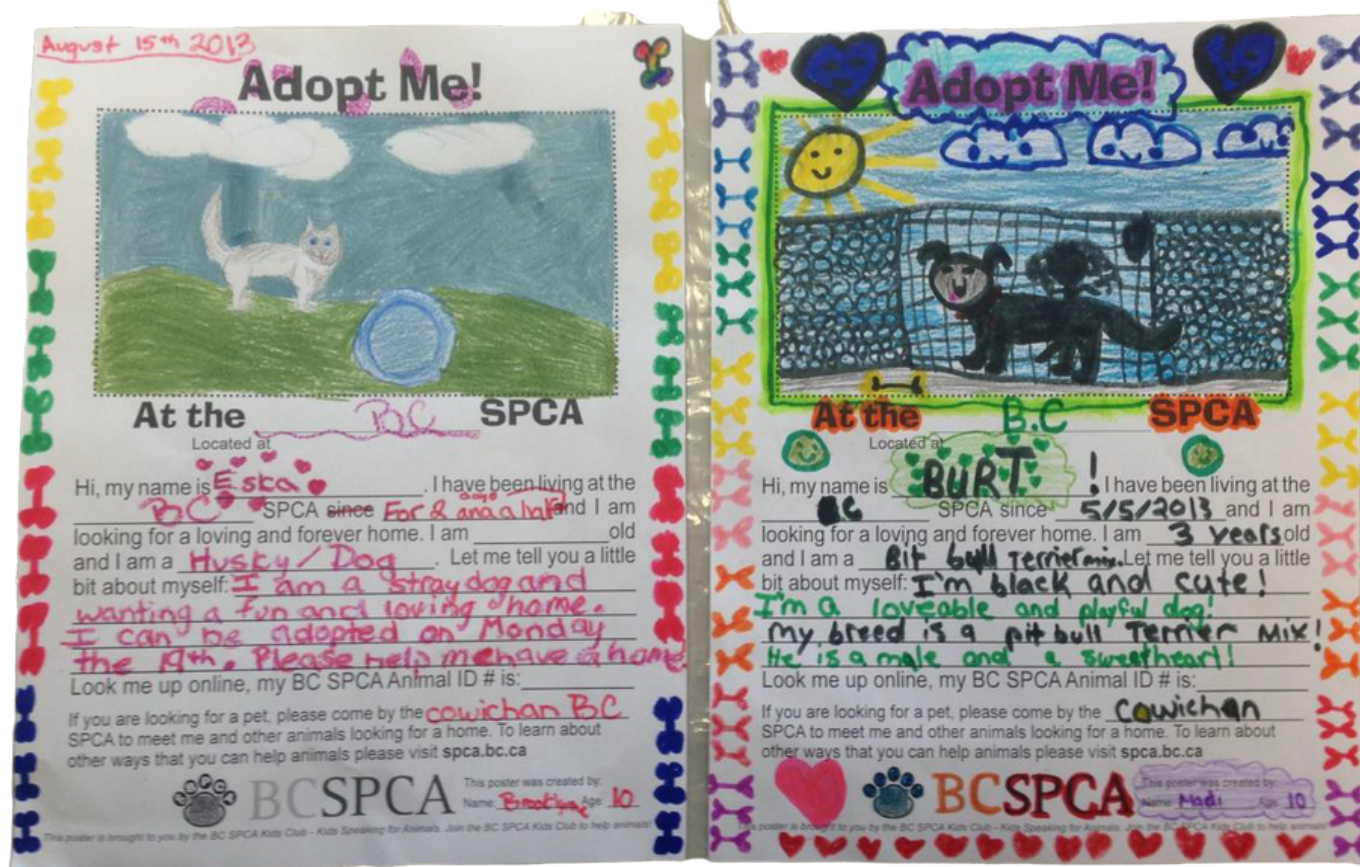 August 15th 2013
Adopt Me!
At the BC SPCA
Located at
Hi, my name is Eska. I have been living at the
BC SPCA since For 2 and a half days and I am
looking for a loving and forever home. I am old
and I am a Husky/Dog. Let me tell you a little
bit about myself: I am a stray dog and
wanting a fun and loving home.
I can be adopted on Monday
the 19th. Please help me have a home.
Look me up online, my BC SPCA Animal ID # is:
If you are looking for a pet, please come by the cowichan BC
SPCA to meet me and other animals looking for a home. To learn about
other ways that you can help animals please visit spca.bc.ca
BCSPCA
This poster was created by:
Name: Brooklyn Age: 10
This poster is brought to you by the BC SPCA Kids Club - Kids Speaking for Animals. Join the BC SPCA Kids Club to help animals!
Adopt Me!
At the B.C SPCA
Located at
Hi, my name is BURT! I have been living at the
BC SPCA since 5/5/2013 and I am
looking for a loving and forever home. I am 3 years old
and I am a Bit bull Terrier mix. Let me tell you a little
bit about myself: I'm black and cute!
I'm a loveable and playful dog!
My breed is a pit bull Terrier Mix!
He is a male and a sweetheart!
Look me up online, my BC SPCA Animal ID # is:
If you are looking for a pet, please come by the Cowichan
SPCA to meet me and other animals looking for a home. To learn about
other ways that you can help animals please visit spca.bc.ca
BCSPCA
This poster was created by:
Name: Madi Age: 10
This poster is brought to you by the BC SPCA Kids Club - Kids Speaking for Animals. Join the BC SPCA Kids Club to help animals!